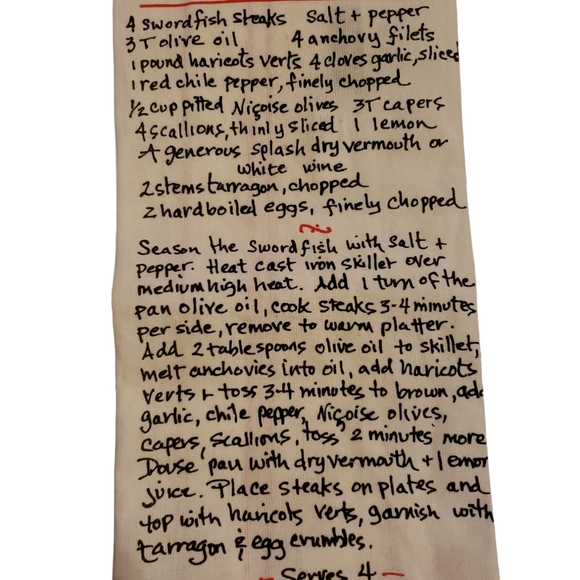 4 swordfish steaks   salt + pepper
3 T olive oil   4 anchovy filets
1 pound haricots verts 4 cloves garlic, sliced
1 red chile pepper, finely chopped
1/2 cup pitted Niçoise olives 3T capers
4 scallions, thinly sliced 1 lemon
A generous splash dry vermouth or
white wine
2 stems tarragon, chopped
2 hardboiled eggs, finely chopped
Season the swordfish with salt +
pepper. Heat cast iron skillet over
medium high heat. Add 1 turn of the
pan olive oil, cook steaks 3-4 minutes
per side, remove to warm platter.
Add 2 tablespoons olive oil to skillet,
melt anchovies into oil, add haricots
verts + toss 3-4 minutes to brown, add
garlic, chile pepper, Niçoise olives,
capers, scallions, toss 2 minutes more
Douse pan with dry vermouth + lemon
juice. Place steaks on plates and
top with haricots verts, garnish with
tarragon & egg crumbles.
- Serves 4 -